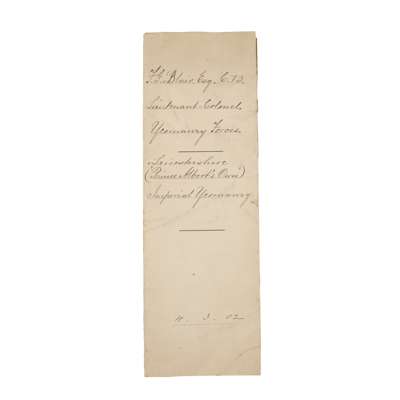 F. F. Blair Esq. C.I.E.
Lieutenant Colonel
Yeomanry Forces
Leicestershire
(Prince Albert's Own)
Imperial Yeomanry
11 . 3 . 02